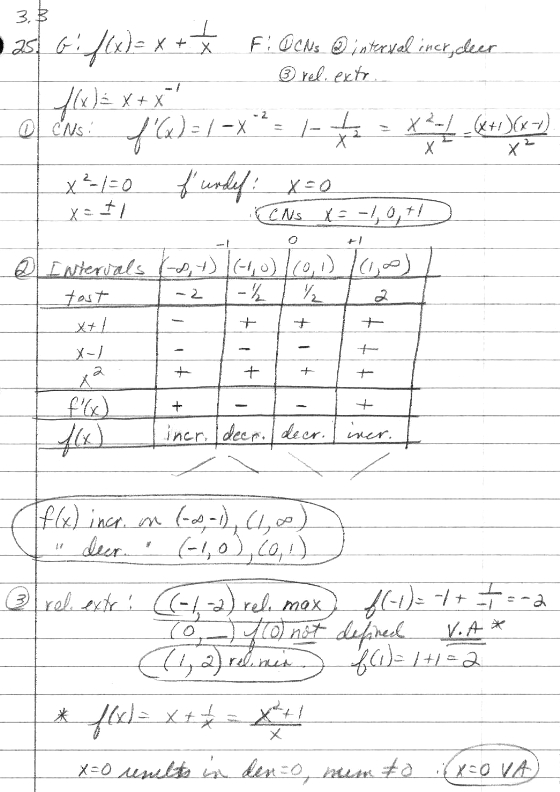 3.3
25. G: f(x) = x + 1/x F: ① CNs ② interval incr, decr
③ rel. extr.
f(x) = x + x⁻¹
① CNs: f'(x) = 1 - x⁻² = 1 - 1/x² = (x²-1)/x² = (x+1)(x-1)/x²
x²-1=0 f' undef: x=0
x = ±1 CNs x = -1, 0, +1
-1 0 +1
② Intervals (-∞,-1) (-1,0) (0,1) (1,∞)
test -2 -½ ½ 2
x+1 - + + +
x-1 - - - +
x² + + + +
f'(x) + - - +
f(x) incr. decr. decr. incr.
f(x) incr. on (-∞,-1), (1,∞)
" decr. " (-1,0), (0,1)
③ rel. extr: (-1,-2) rel. max f(-1) = -1 + 1/-1 = -2
(0, _) f(0) not defined V.A *
(1, 2) rel. min. f(1) = 1+1 = 2
* f(x) = x + 1/x = (x²+1)/x
x=0 results in den=0, num ≠0 ∴ x=0 VA